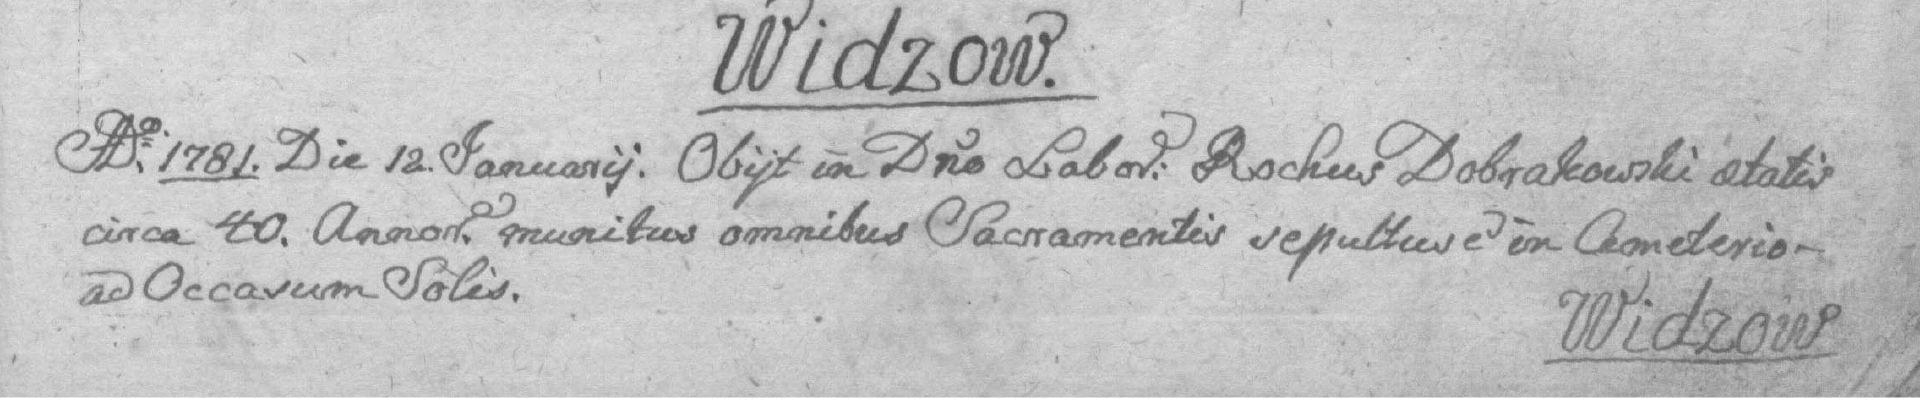 Widzow.
Ao: 1781. Die 12. Januarij. Obijt in Dño Labor: Rochus Dobrakowski ætatis
circa 40. Annor: munitus omnibus Sacramentis sepultus e in Cemeterio
ad Occasum Solis.
Widzow